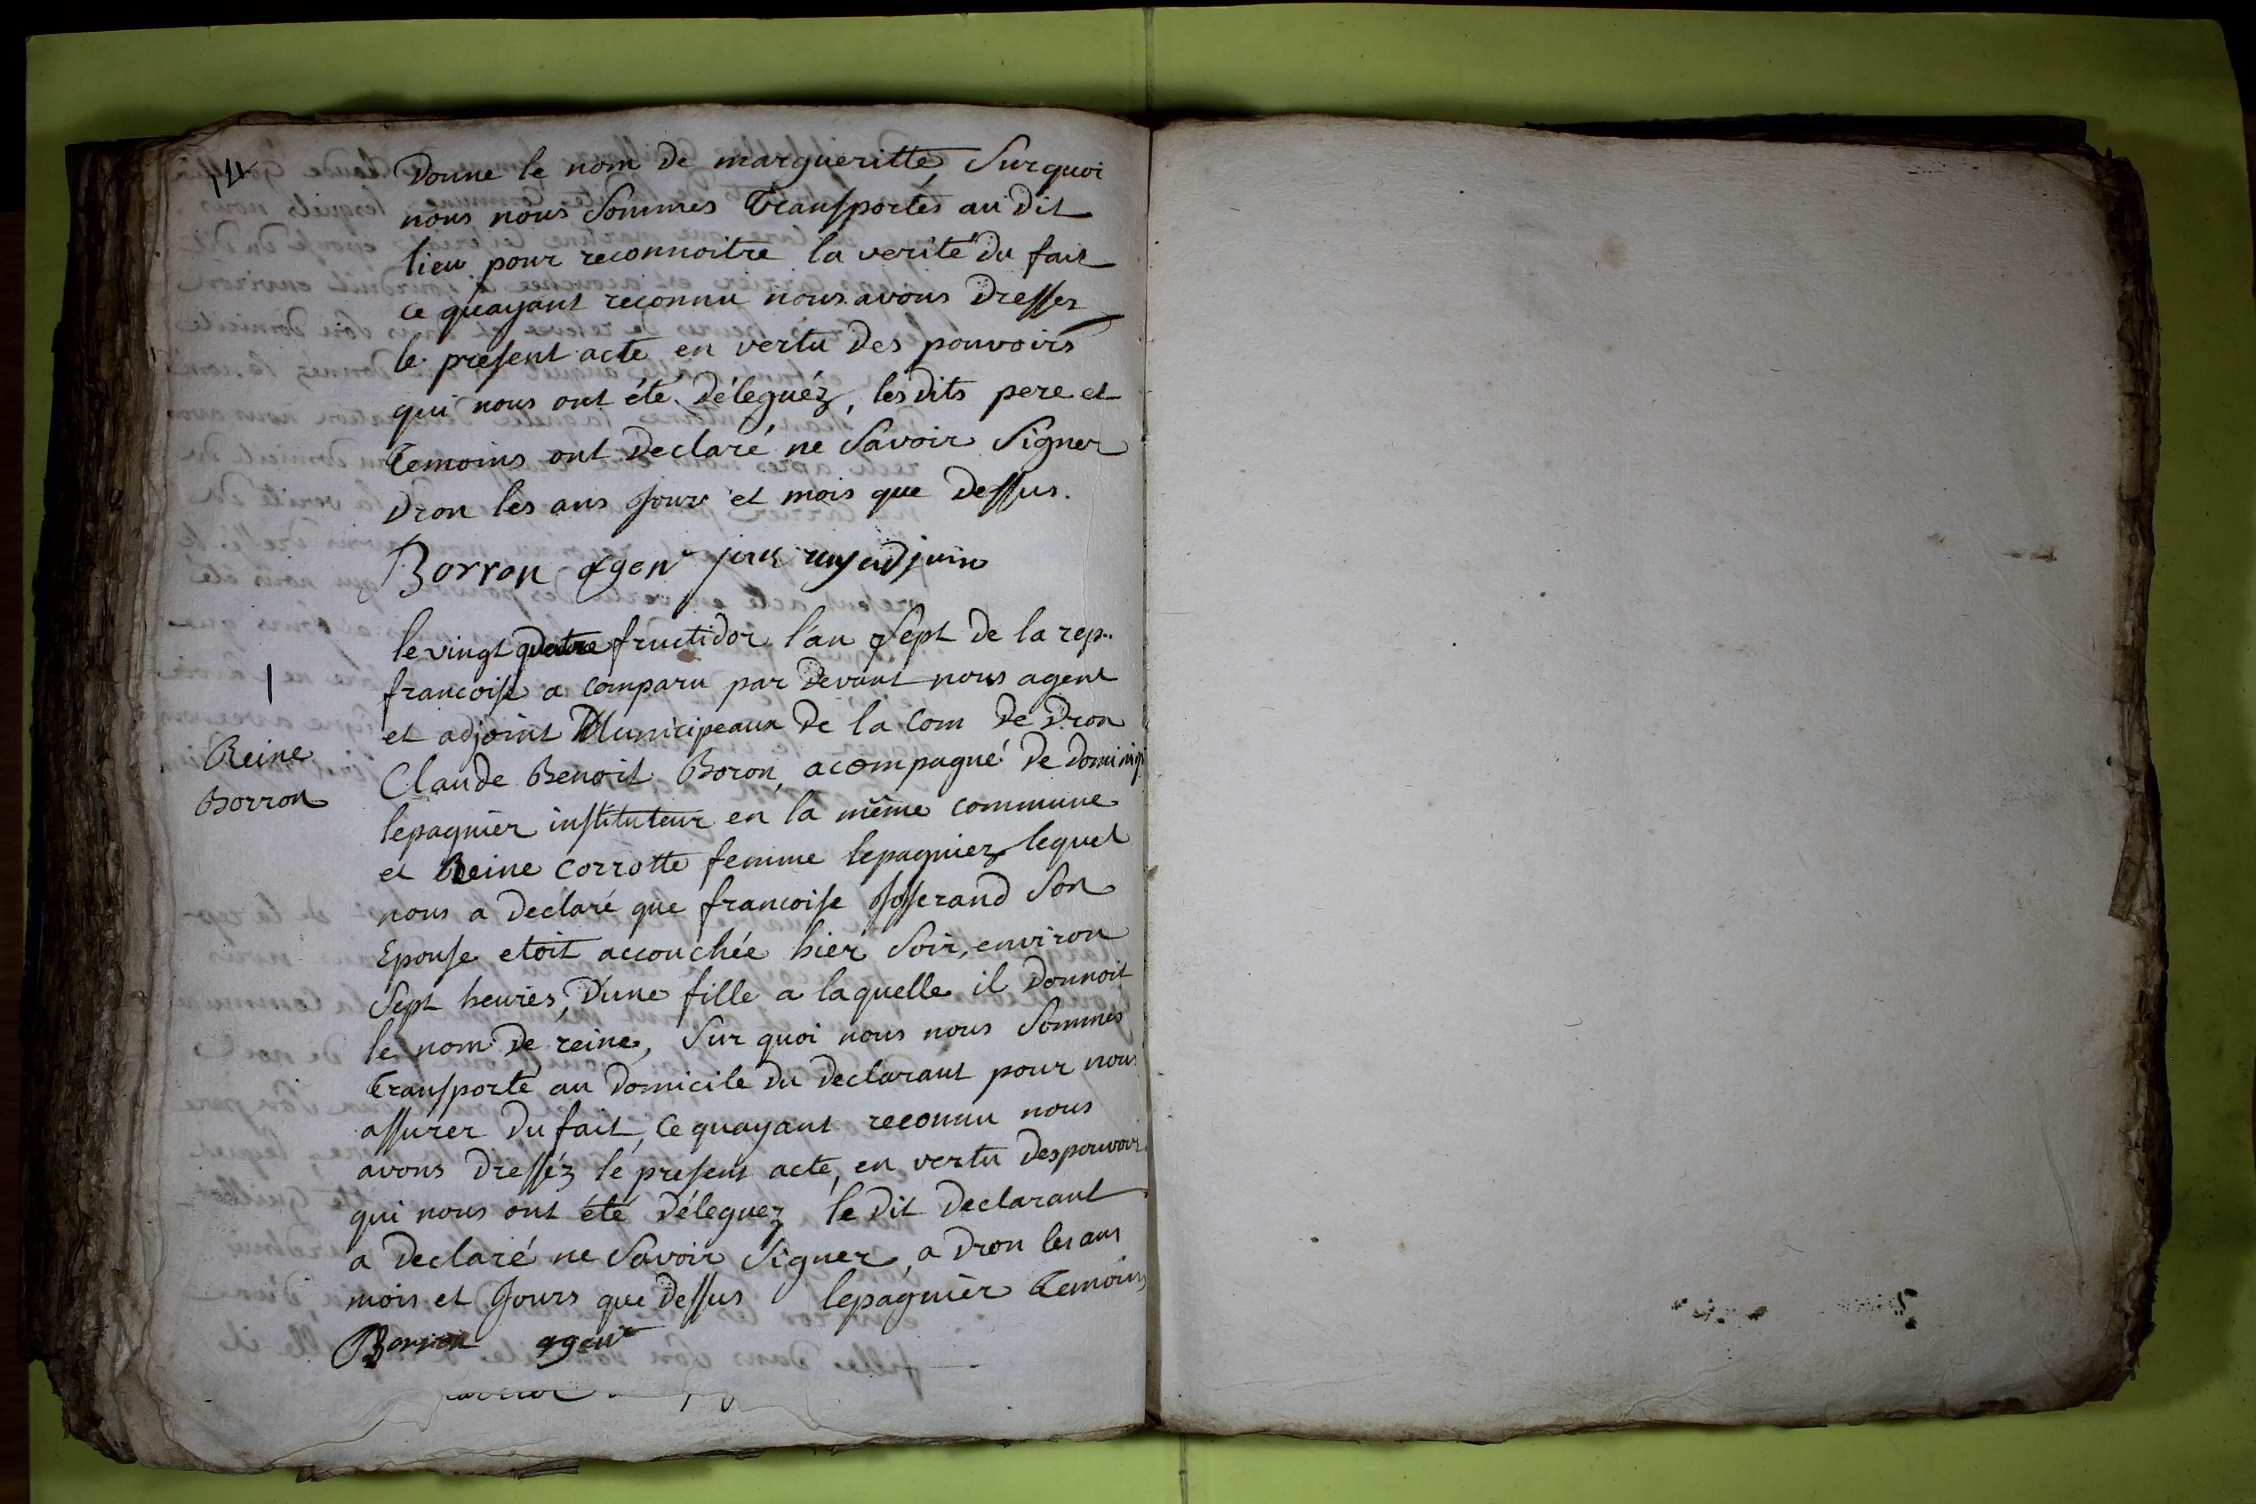 Donne le nom de margueritte, Surquoi
nous nous Sommes Transportés au Dit
lieu pour reconnoitre la verité Du fait
ce quayant reconnu nous avons Dresser
le present acte en vertu Des pouvoirs
qui nous ont été Déléguéz, les Dits pere et
Temoins ont Declaré ne Savoir Signer
Dron les ans Jour et mois que Dessus.
Borron agen
le vingt quatre fructidor l'an Sept De la rep..
francoise a comparu par Devant nous agent
et adjoint Municipeaux De la Com De Dron
Reine
Borron
Claude Benoit Boron, acompagné De Dominiq
lepagnier instituteur en la même commune
et Reine Corrotte femme lepagniez lequel
nous a Declaré que francoise Josserand Son
Epouse etoit accouchée hier Soir, environ
Sept heures, D'une fille a laquelle il Donnoit
le nom De reine, Sur quoi nous nous Sommes
Transporté au Domicile Du Declarant pour nous
assurer Du fait, Ce quayant reconnu nous
avons Dresséz le present acte, en vertu Des pouvoir
qui nous ont été Déleguez le Dit Declarant
a Declaré ne Savoir Signer, a Dron les ans
mois et Jours que Dessus lepagnier Temoins
Borron agen